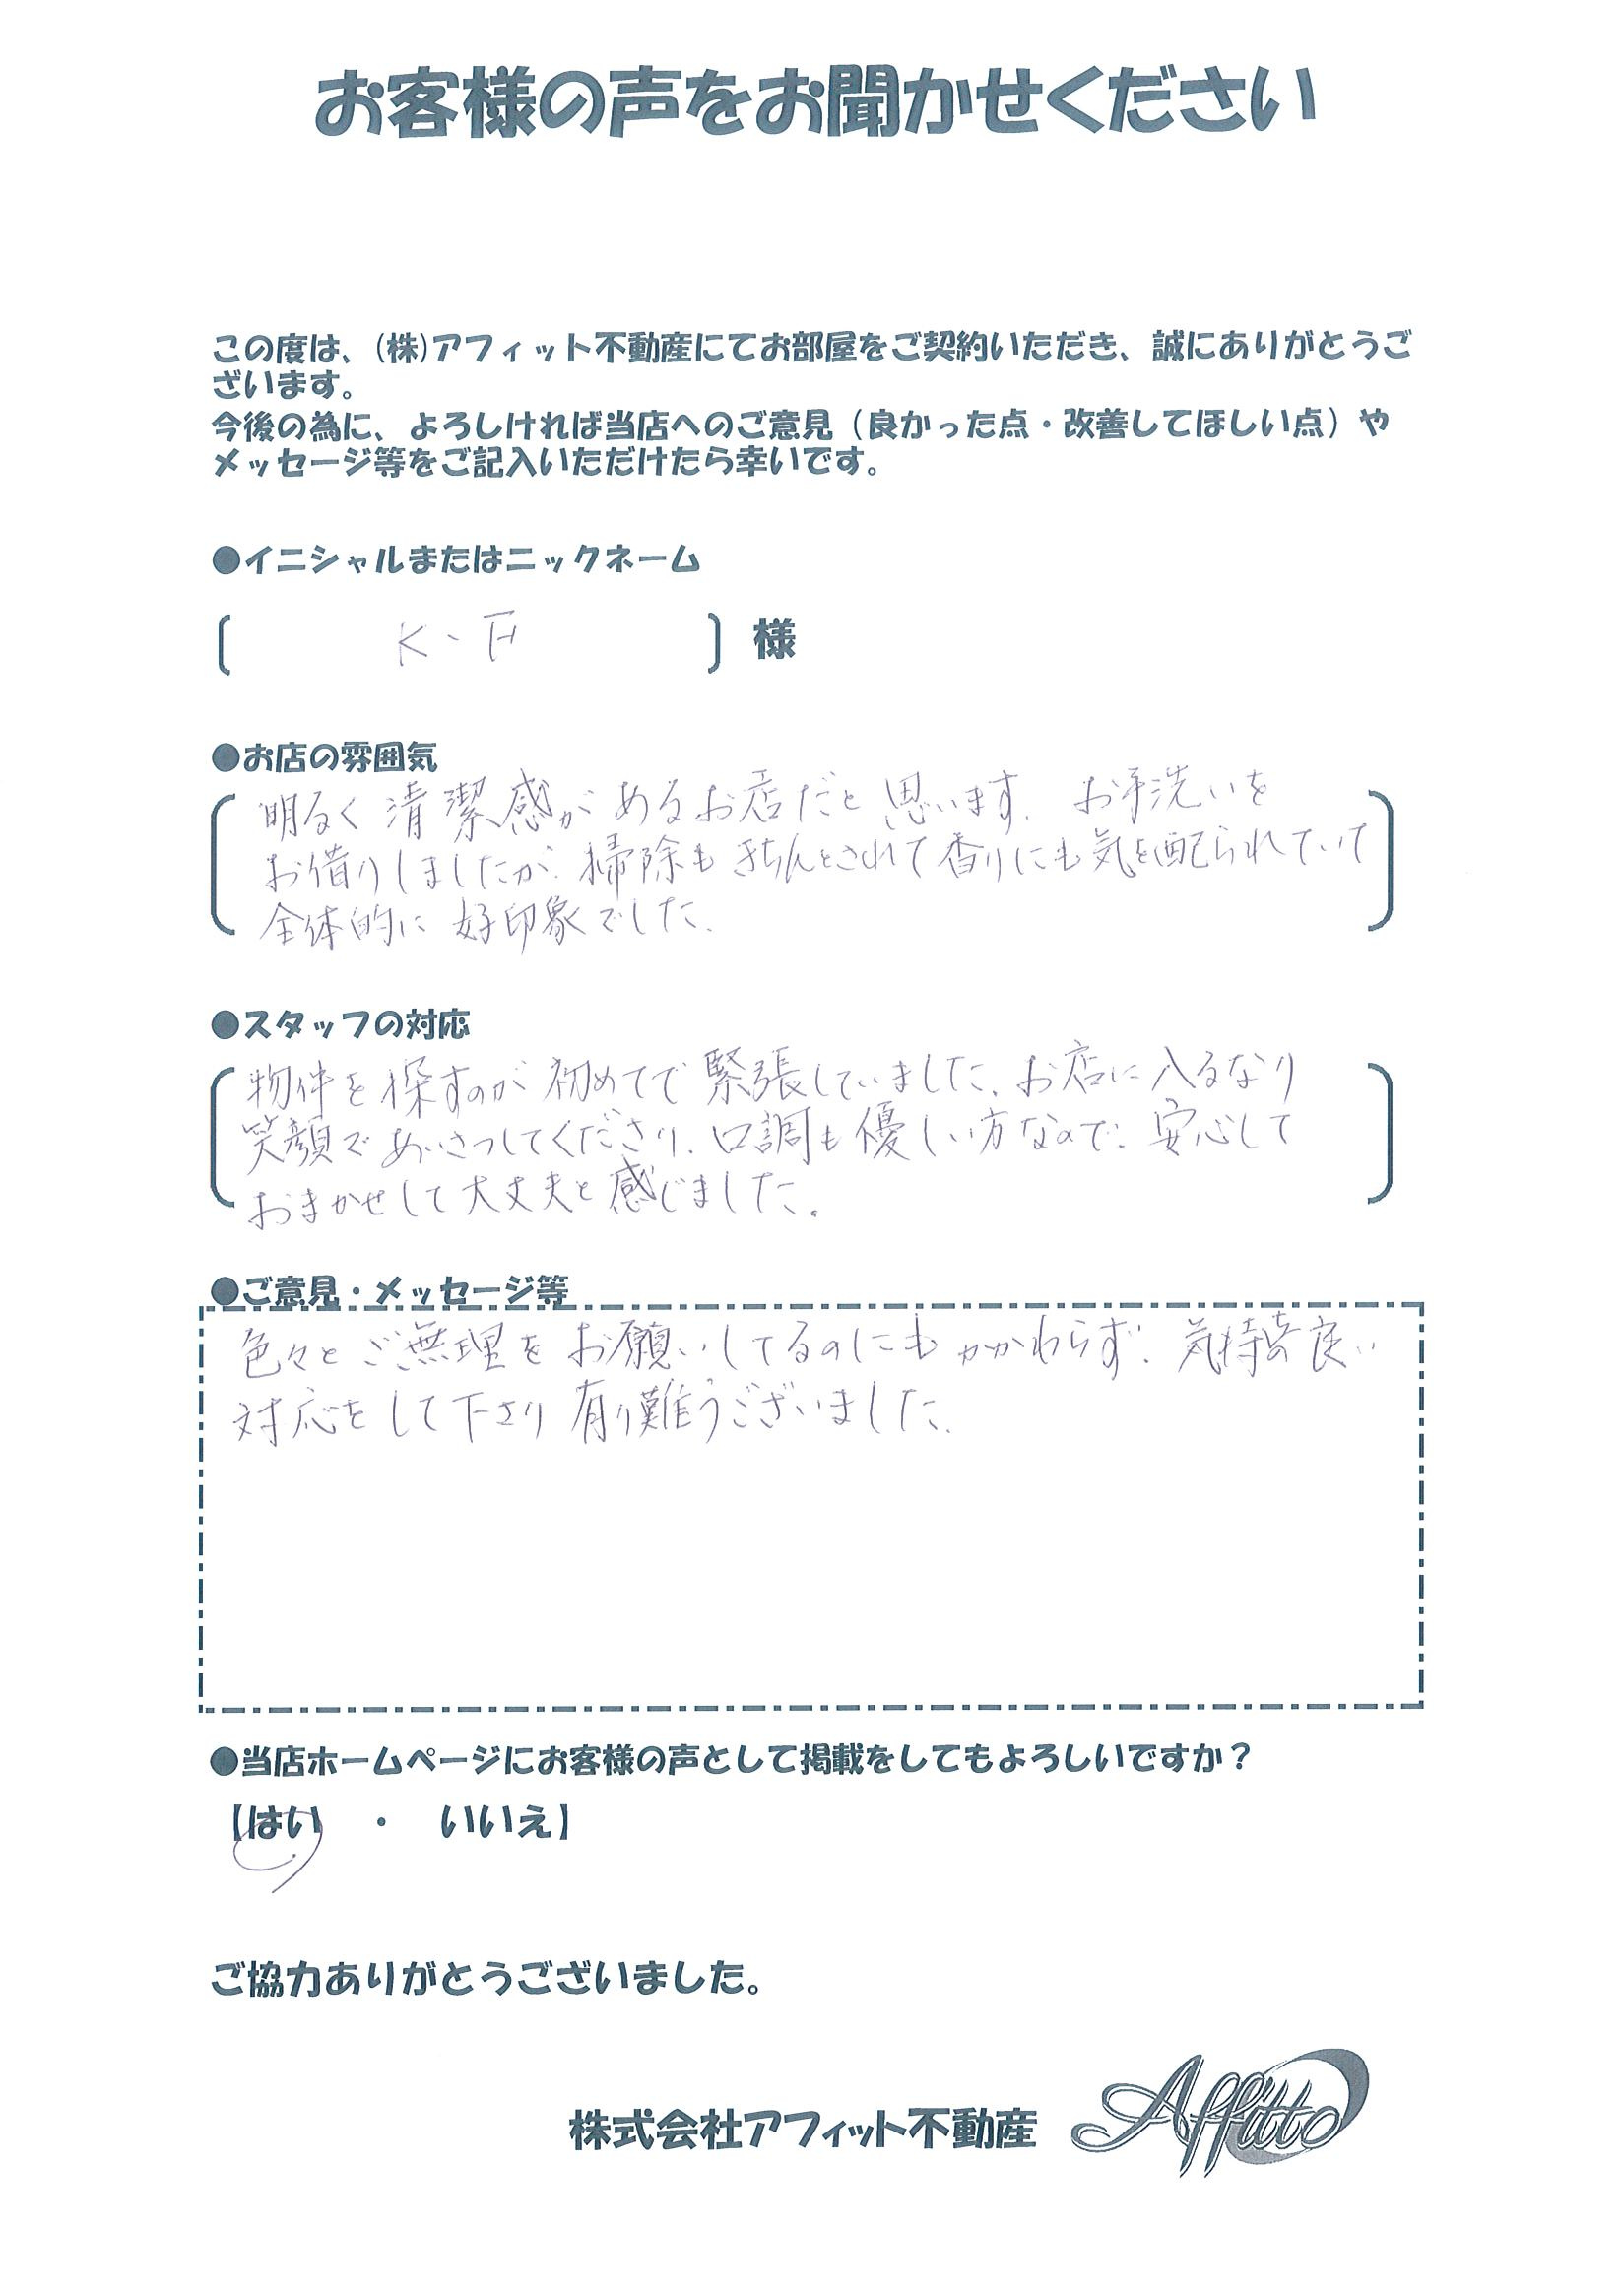 お客様の声をお聞かせください
この度は、(株)アフィット不動産にてお部屋をご契約いただき、誠にありがとうご
ざいます。
今後の為に、よろしければ当店へのご意見（良かった点・改善してほしい点）や
メッセージ等をご記入いただけたら幸いです。
●イニシャルまたはニックネーム
〔 K・F 〕様
●お店の雰囲気
明るく清潔感があるお店だと思います。お手洗いを
お借りしましたが、掃除もきちんとされて香りにも気を配られていて
全体的に好印象でした。
●スタッフの対応
物件を探すのが初めてで緊張していました、お店に入るなり
笑顔であいさつしてくださり、口調も優しい方なので、安心して
おまかせして大丈夫と感じました。
●ご意見・メッセージ等
色々とご無理をお願いしてるのにもかかわらず、気持ち良い
対応をして下さり有り難うございました。
●当店ホームページにお客様の声として掲載をしてもよろしいですか？
【はい ・ いいえ】
ご協力ありがとうございました。
株式会社アフィット不動産 Affitto